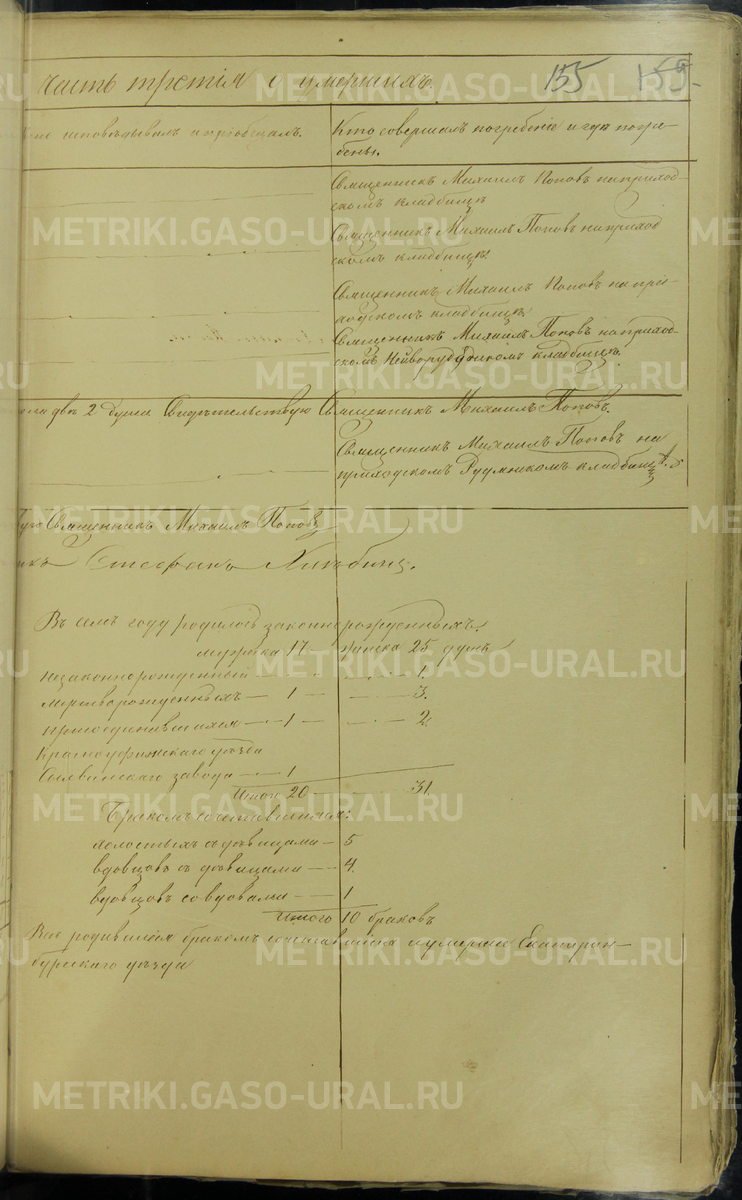 часть третія о умершихъ. 155 159.
исповѣдывалъ и пріобщалъ.
Кто совершалъ погребеніе и гдѣ погре-
бены.
Священникъ Михаилъ Поповъ на приход-
скомъ кладбищѣ
Священникъ Михаилъ Поповъ на приход
скомъ кладбищѣ.
Священникъ Михаилъ Поповъ на при-
ходскомъ кладбищѣ.
Священникъ Михаилъ Поповъ на приход-
скомъ Нейворудянскомъ кладбищѣ.
двѣ 2 души Свидѣтельствую Священникъ Михаилъ Поповъ.
Священникъ Михаилъ Поповъ на
приходскомъ кладбищѣ
Священникъ Михаилъ Поповъ
Стефанъ
Въ семъ году родилось законнорожденныхъ:
мужеска 17 — женска 25 душъ
незаконнорожденный — 1.
мертворожденныхъ — 1 — 3.
присоединившихся — 1 — 2.
Красноуфимскаго уѣзда
завода — 1
Итого 20 — 31.
Бракомъ сочетавшихся:
холостыхъ съ дѣвицами — 5
вдовцовъ съ дѣвицами — 4.
вдовцовъ со вдовами — 1
Итого 10 браковъ
Всѣ родившіеся бракомъ сочетавшіеся и умершіе Екатерин-
бургскаго уѣзда
METRIKI.GASO-URAL.RU